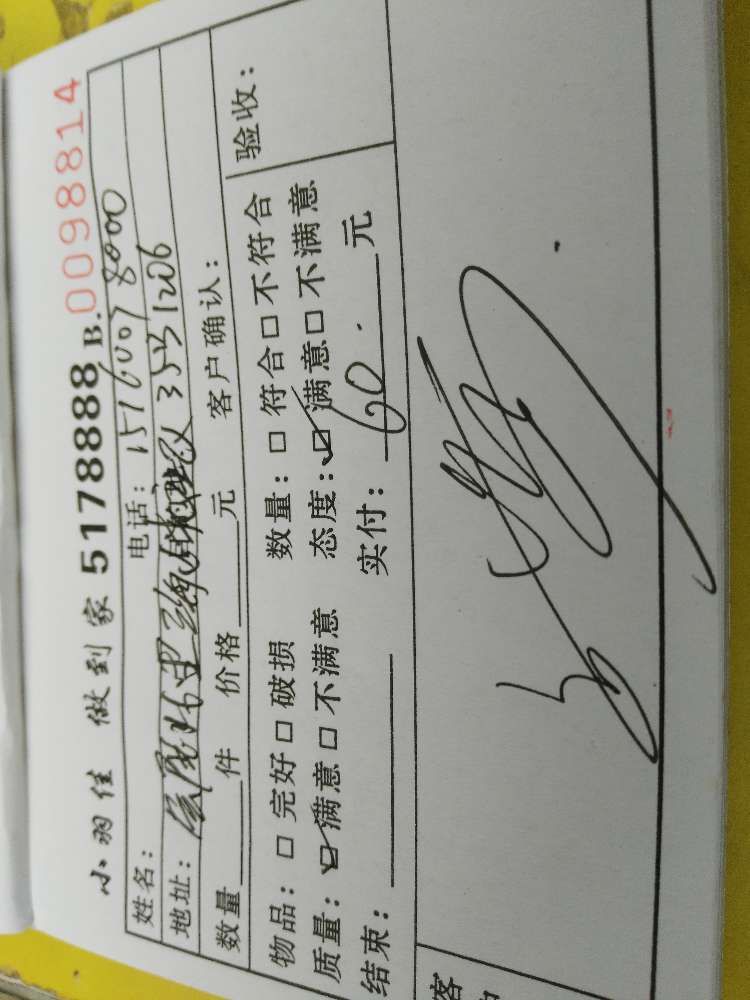 小羽佳 做到家 5178888 B. 0098814
姓名： 电话：15160078000
地址： 3531206
数量 件 价格 元 客户确认：
物品：□ 完好 □ 破损 数量：□ 符合 □ 不符合 验收：
质量：☑ 满意 □ 不满意 态度：☑ 满意 □ 不满意
结束： 实付：60. 元
客